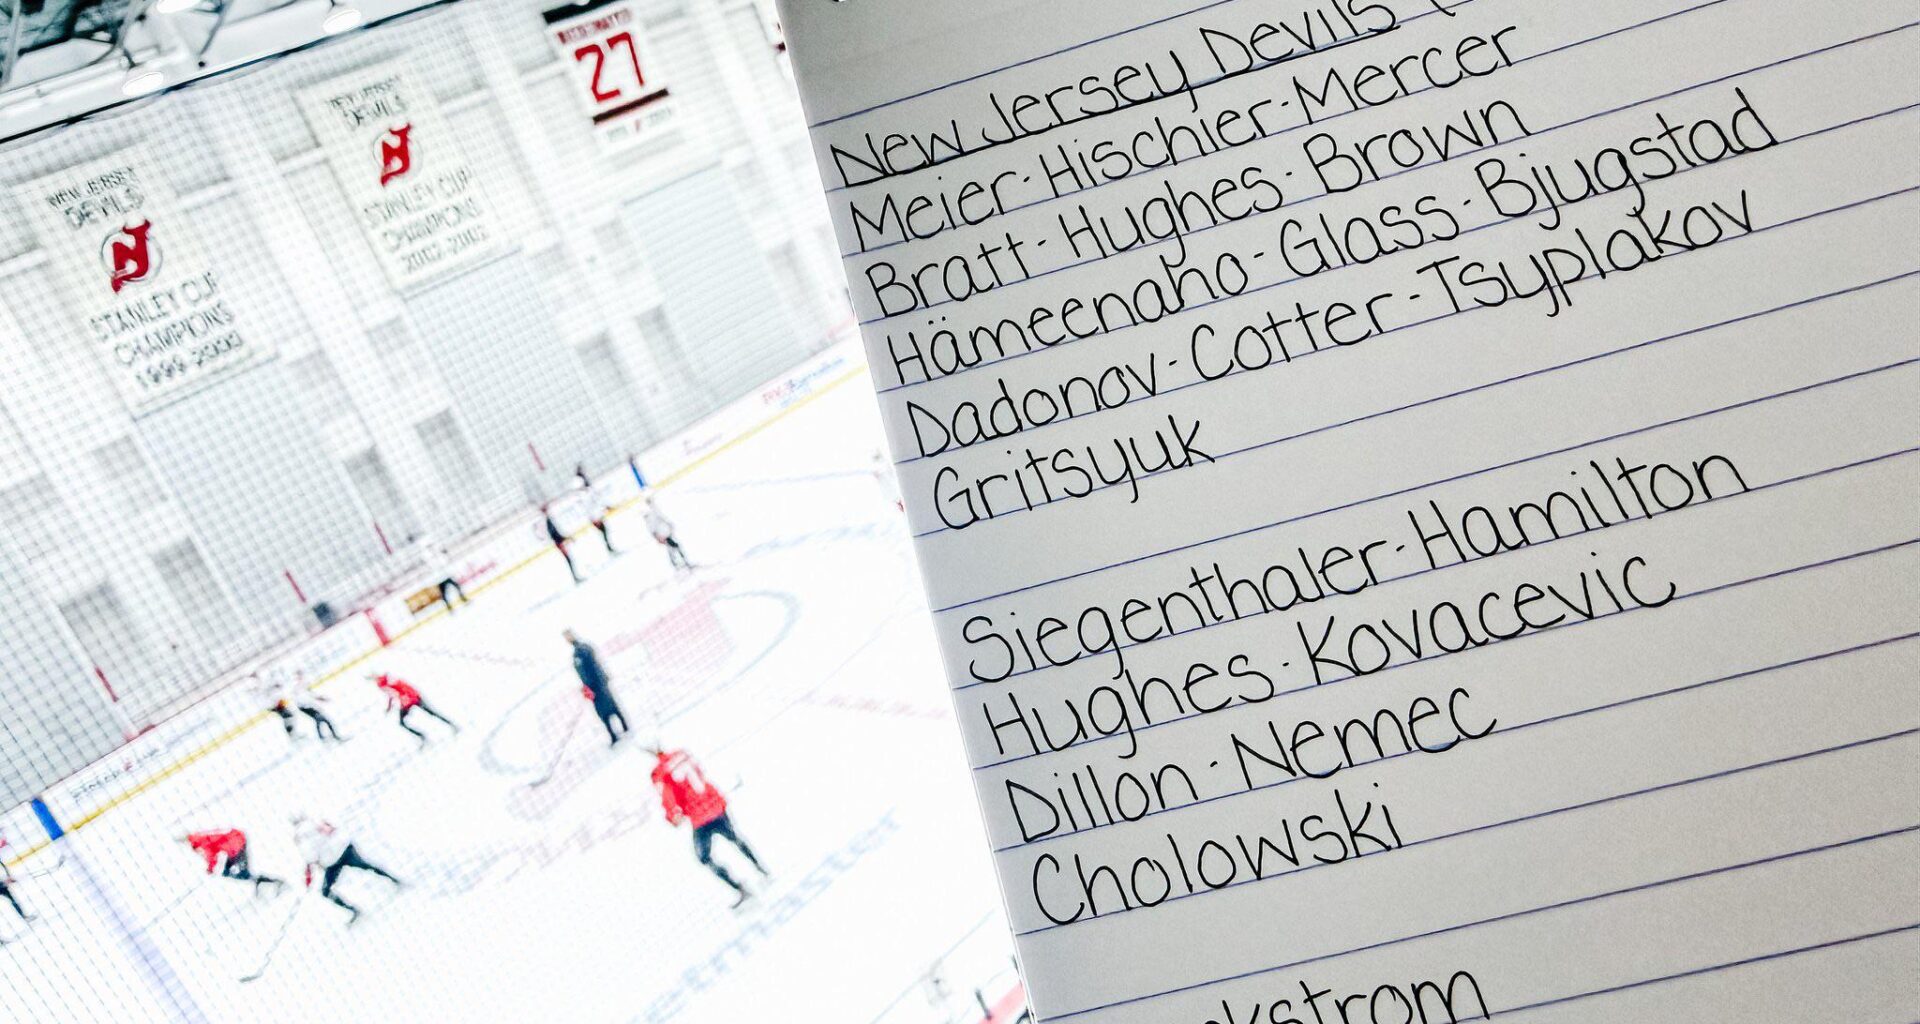 NEW JERSEY
DEVILS
STANLEY CUP
CHAMPIONS
1999-2000
NEW JERSEY
DEVILS
STANLEY CUP
CHAMPIONS
2002-2003
27
New Jersey Devils
Meier-Hischier-Mercer
Bratt-Hughes-Brown
Hämeenaho-Glass-Bjugstad
Dadonov-Cotter-Tsyplakov
Gritsyuk
Siegenthaler-Hamilton
Hughes-Kovacevic
Dillon-Nemec
Cholowski